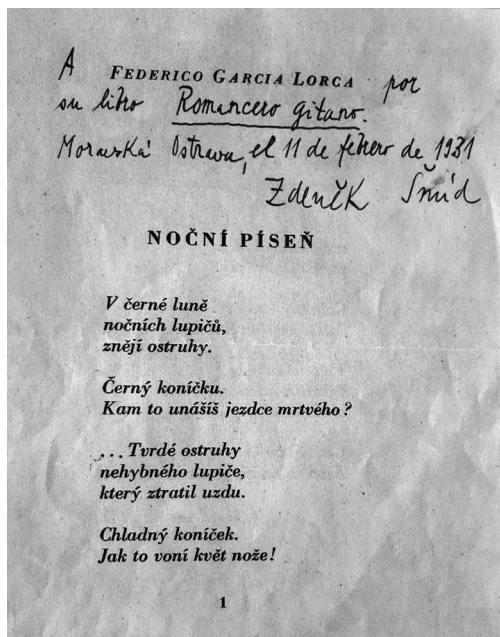 A FEDERICO GARCIA LORCA por
su libro Romancero gitano.
Moravská Ostrava, el 11 de febrero de 1931
Zdeněk Šmíd
NOČNÍ PÍSEŇ
V černé luně
nočních lupičů,
znějí ostruhy.
Černý koníčku.
Kam to unášíš jezdce mrtvého?
...Tvrdé ostruhy
nehybného lupiče,
který ztratil uzdu.
Chladný koníček.
Jak to voní květ nože!
1